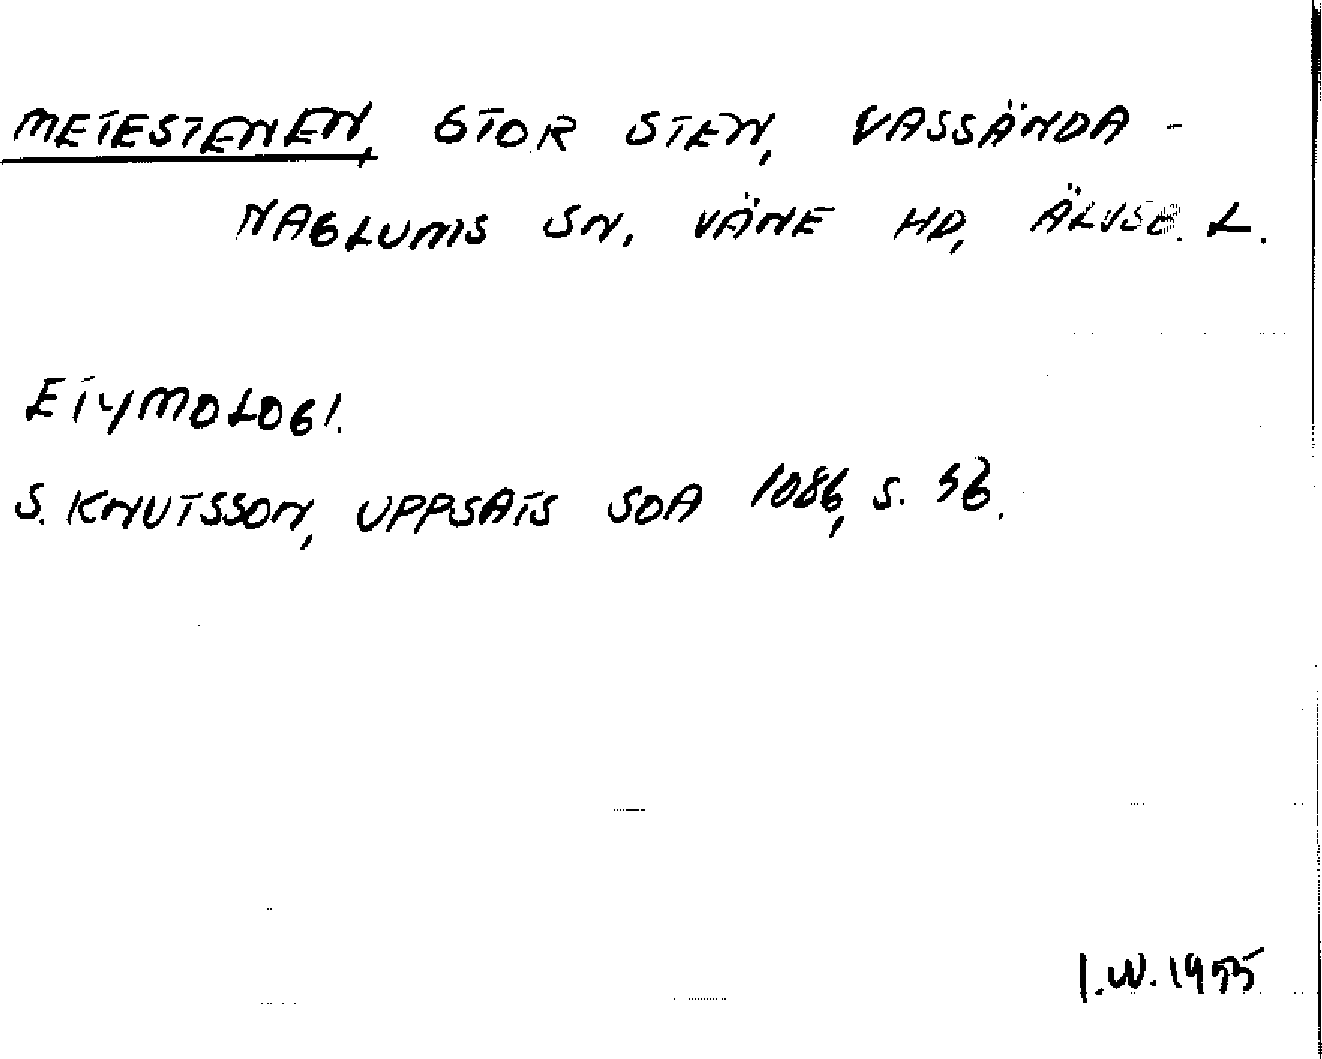 METESTENEN, STOR STEN, VASSÄNDA-
NAGLUMS SN, VÄNE HD, ÄLVSB. L.
ETYMOLOGI.
S. KNUTSSON, UPPSATS SOA 1086, s. 56.
I.W. 1955